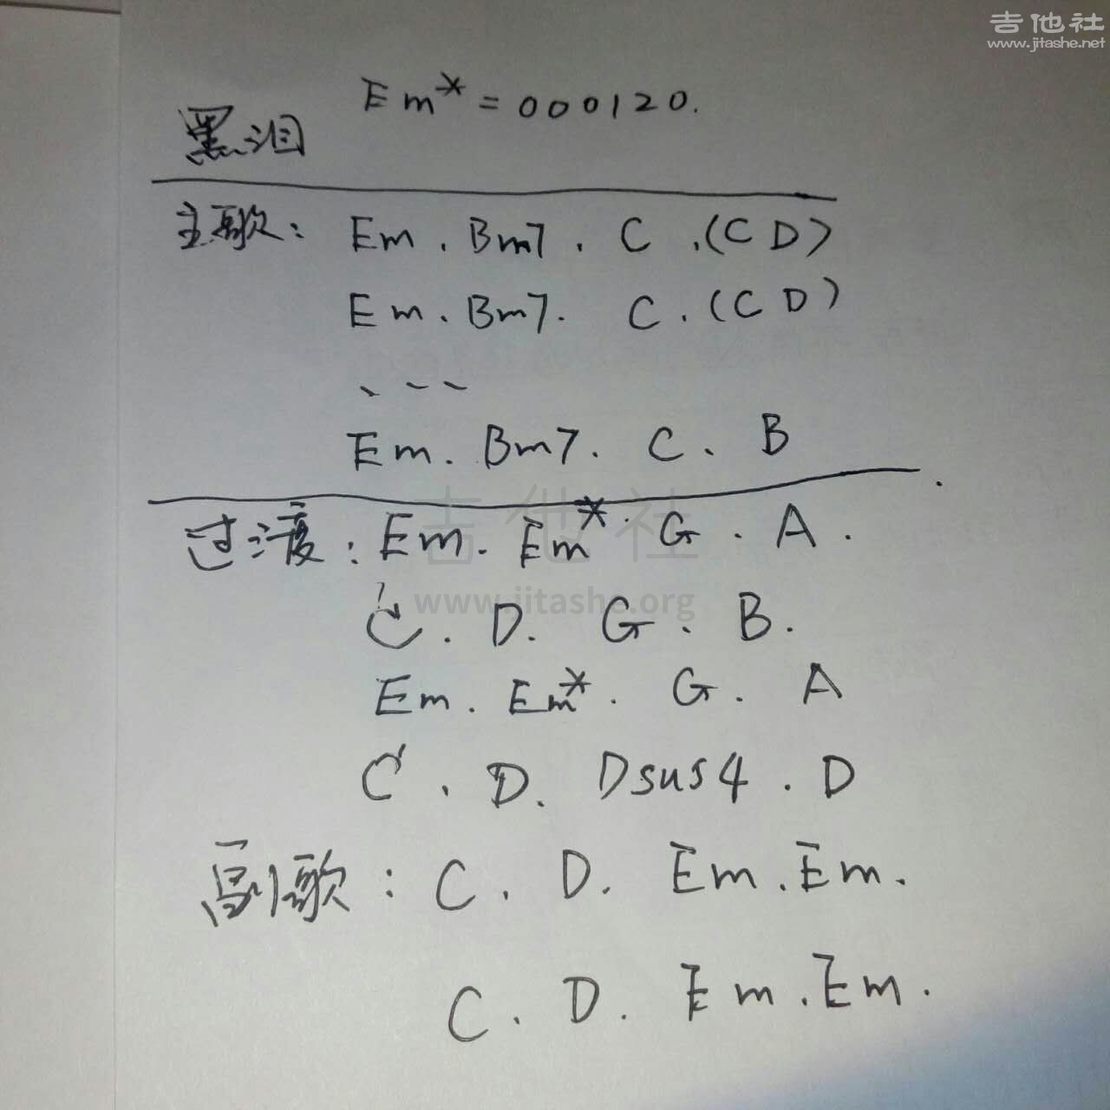 吉他社
www.jitashe.net
Em* = 000120.
黑泪
主歌: Em . Bm7 . C .(C D)
Em . Bm7 . C . (C D)
、 - -
Em . Bm7 . C 、 B
过渡: Em . Em* . G . A .
吉他社
www.jitashe.org
C . D . G . B .
Em . Em* . G . A
C . D . Dsus4 . D
副歌: C . D . Em . Em .
C . D . Em . Em .